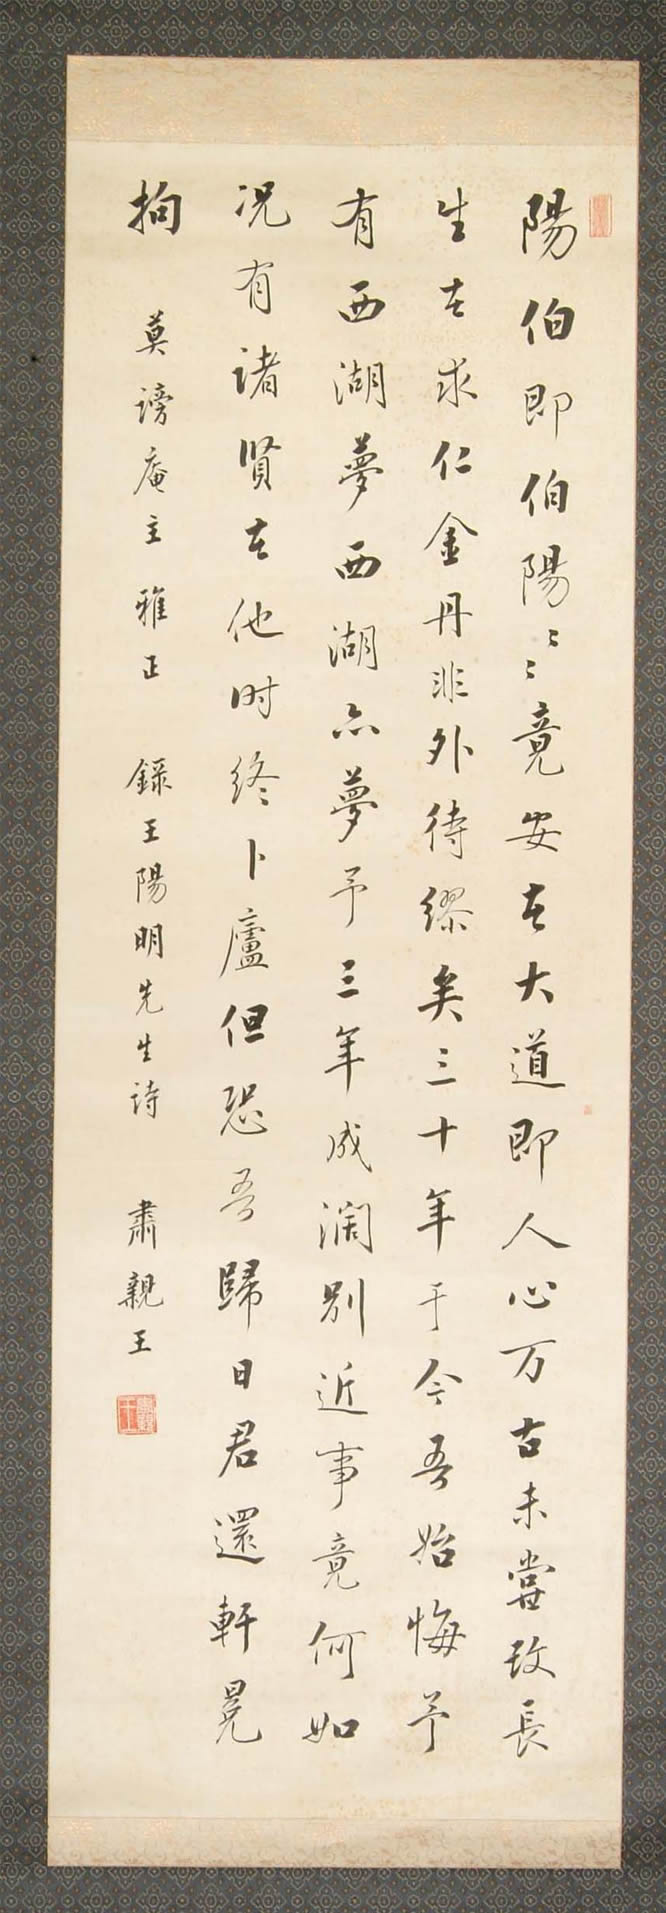 陽伯即伯陽〻〻竟安在大道即人心万古未嘗改長
生在求仁金丹非外待繆矣三十年于今吾始悔予
有西湖夢西湖亦夢予三年成濶別近事竟何如
况有諸賢在他时終卜廬但恐吾歸日君還軒冕
拘
莫謗庵主 雅正 錄王陽明先生诗 肅親王